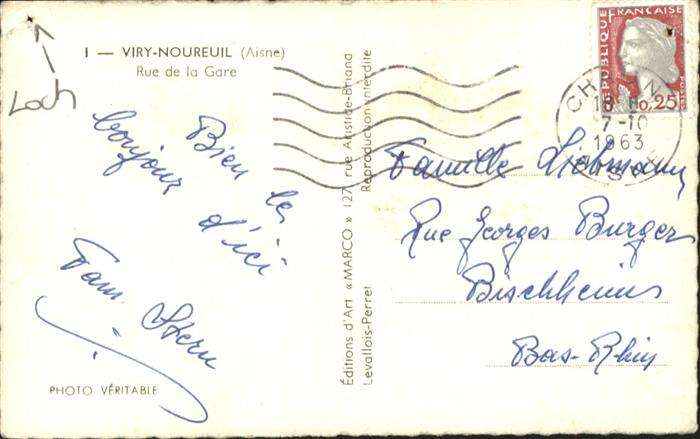 1 — VIRY-NOUREUIL (Aisne)
Rue de la Gare
Loch
Bien le
bonjour
d'ici
Fam. Stern
PHOTO VÉRITABLE
Éditions d'Art «MARCO» 127, rue Aristide-Briand
Levallois-Perret Reproduction interdite
REPUBLIQUE FRANÇAISE
0,25
18 Ho
7-10
1963
AISNE
Famille Liebmann
Rue Georges Burger
Bischheim
Bas-Rhin